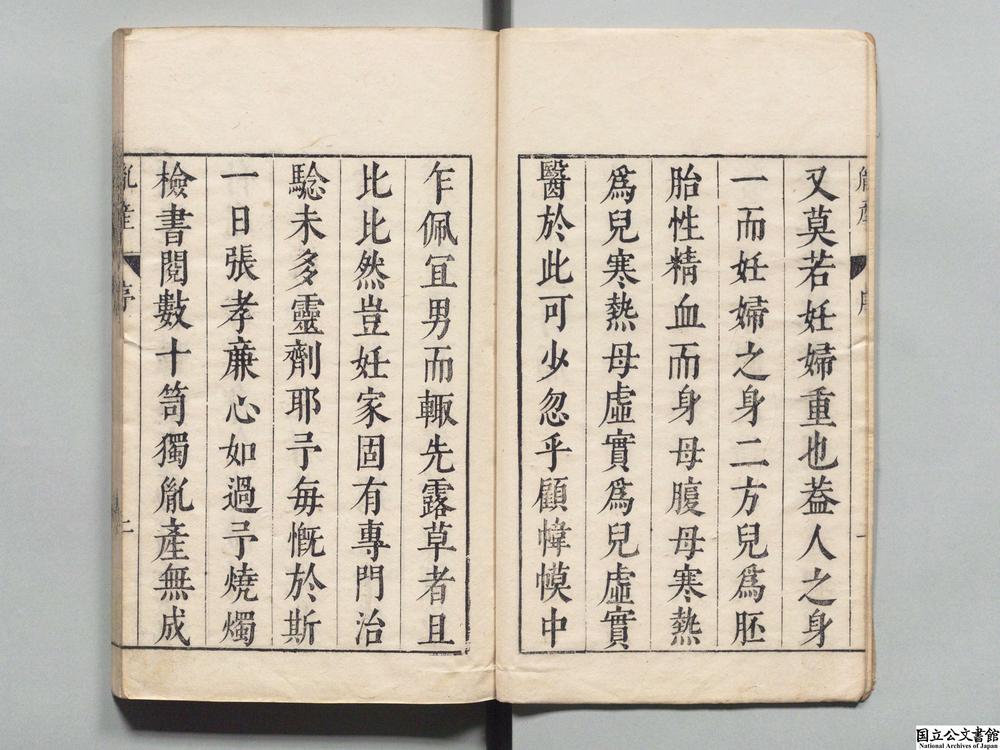 又莫若妊婦重也葢人之身
一而妊婦之身二方兒爲胚
胎性精血而身母腹母寒熱
爲兒寒熱母虛實爲兒虛實
醫於此可少忽乎顧幃幙中
乍佩冝男而輙先露草者且
比比然豈妊家固有專門治
騐未多靈劑耶予每慨於斯
一日張孝亷心如過予燒燭
檢書閱數十笥獨胤產無成
胤產 序 二
国立公文書館
National Archives of Japan